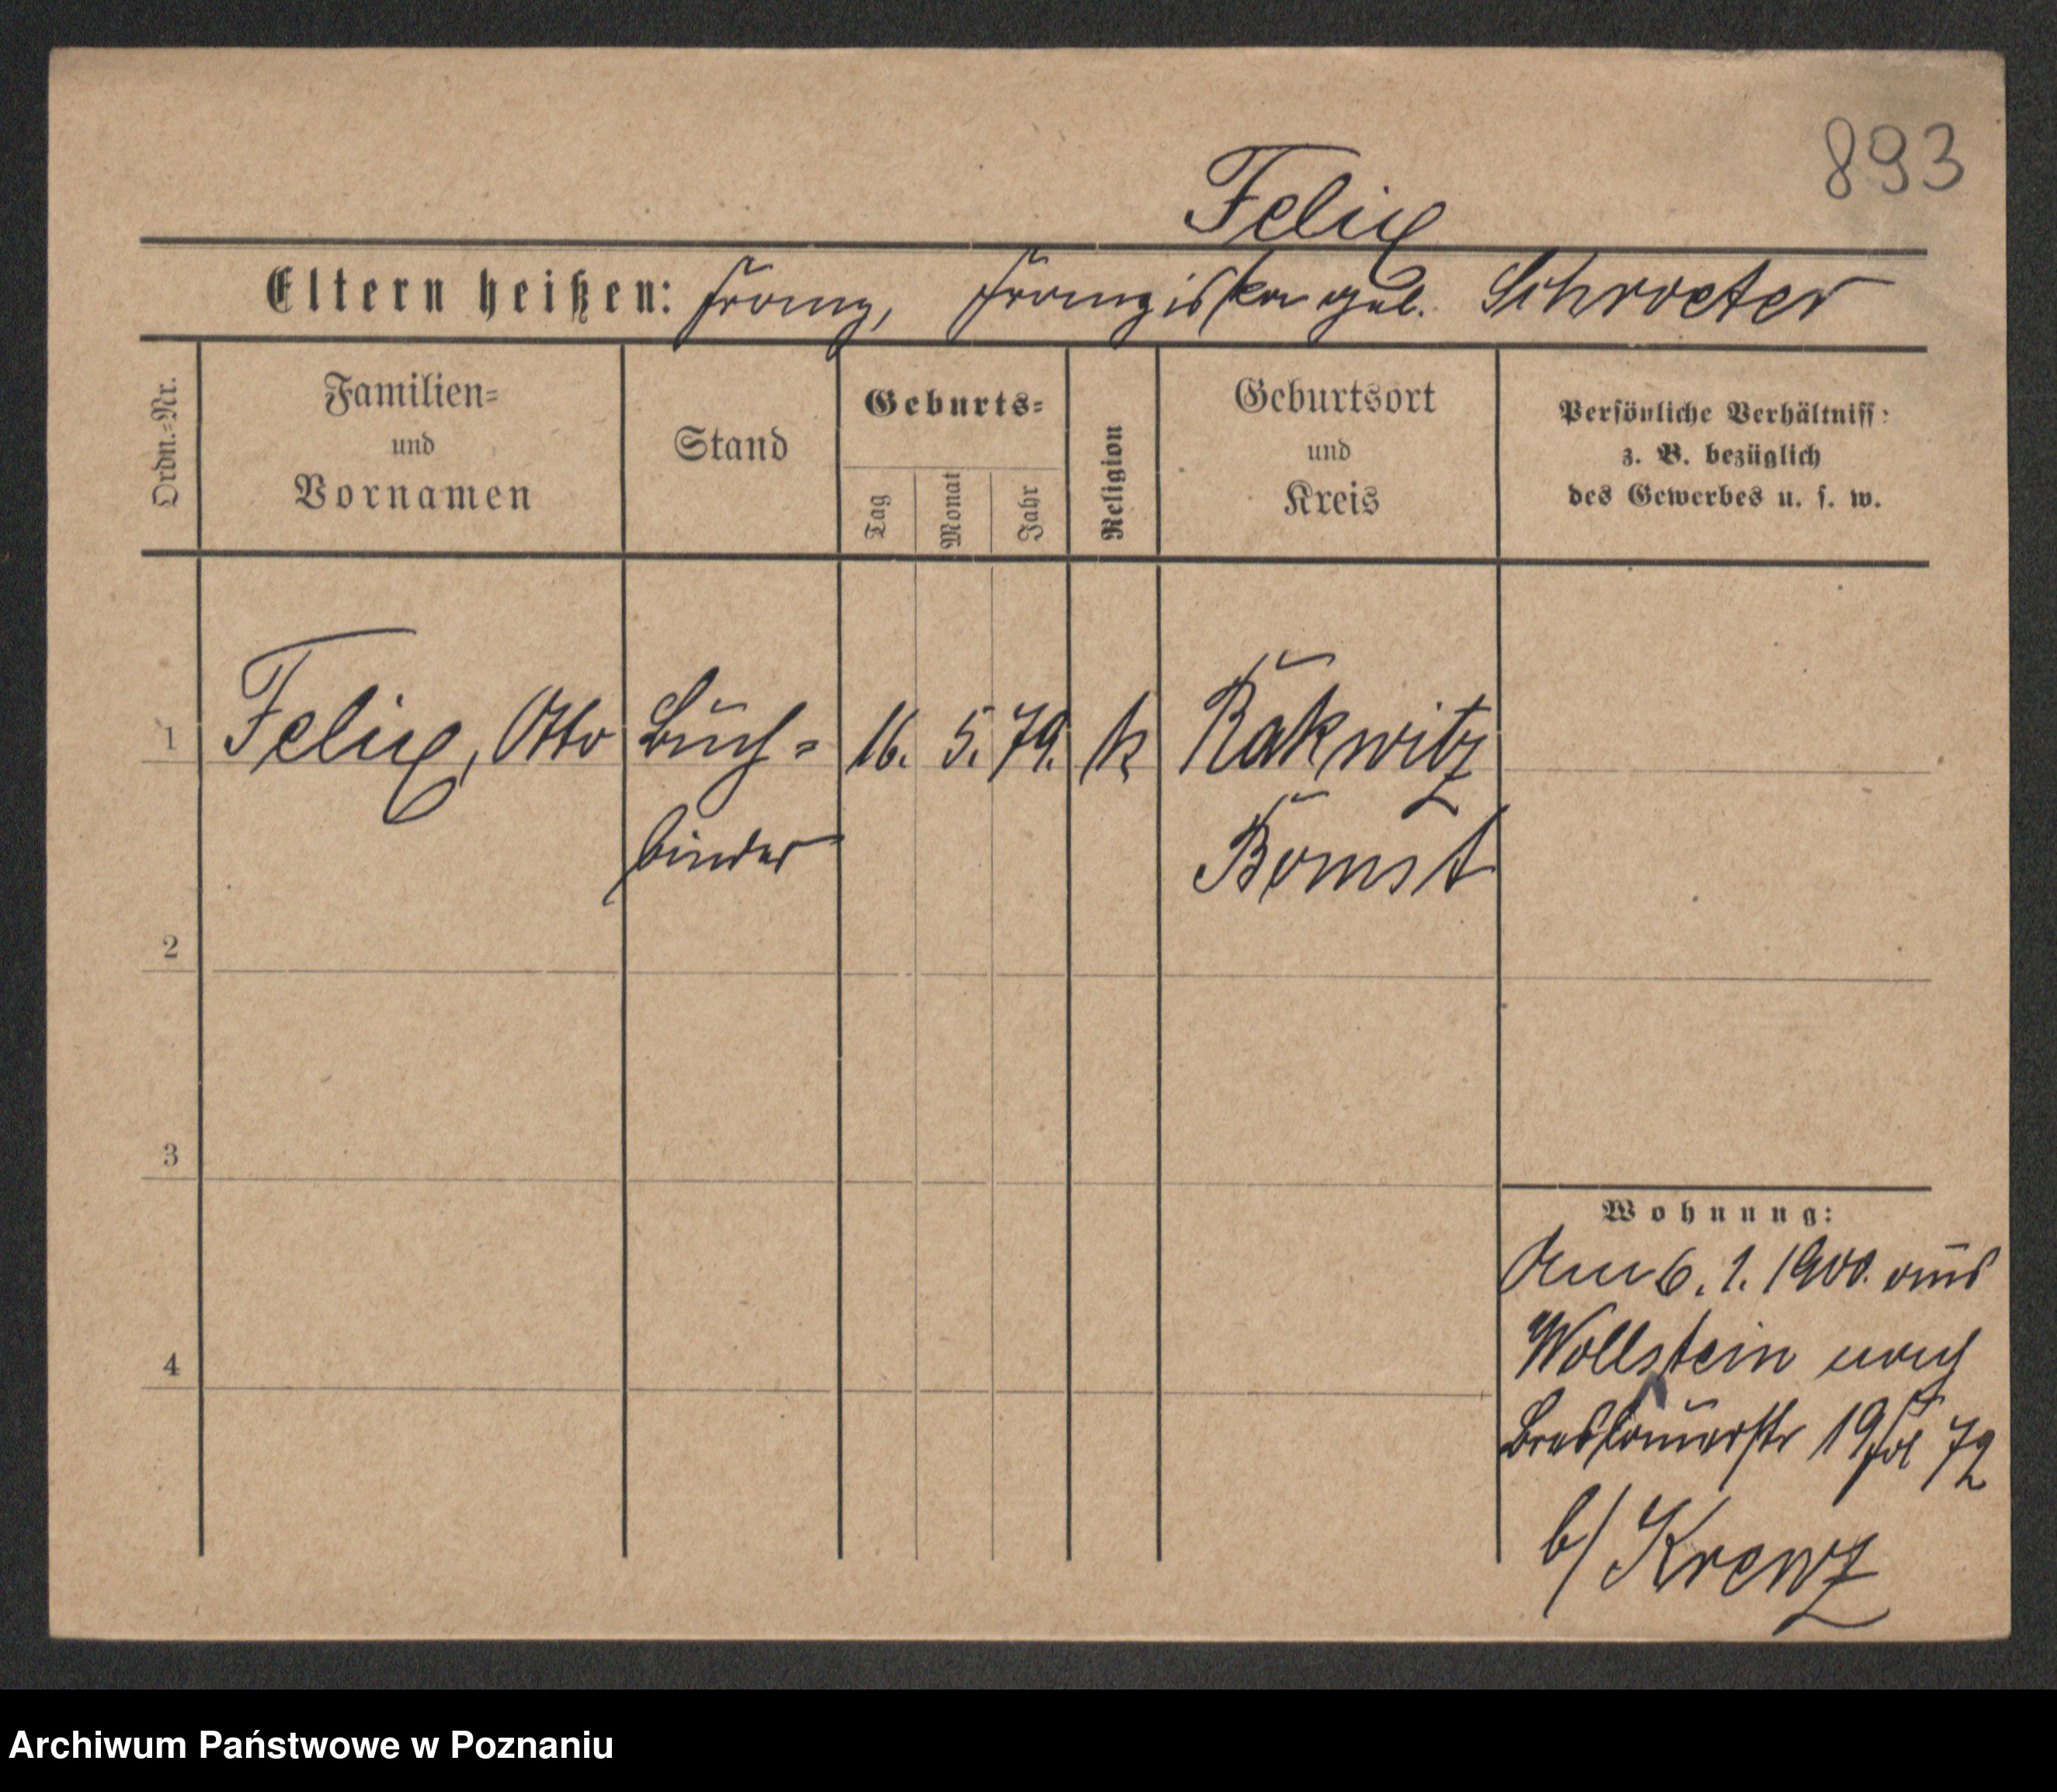 893
Felix
Eltern heißen: Franz, Franziska geb. Schroeter
Ordn.=Nr.
Familien=
und
Vornamen
Stand
Geburts=
Tag
Monat
Jahr
Religion
Geburtsort
und
Kreis
Persönliche Verhältniss:
z. B. bezüglich
des Gewerbes u. s. w.
1 Felix, Otto Buch= 16. 5. 79. k Rakwitz
binder Bomst
2
3
4
Wohnung:
Am 6. 1. 1900. aus
Wollstein nach
Breslauerstr 19 fol 72
b/ Krenz
Archiwum Państwowe w Poznaniu